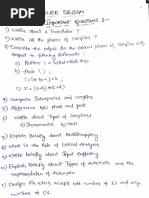 COMPILER DESIGN
IMPORTANT QUESTIONS :-
1) Write about a Translator ?
2) Write all the phases of compiler ?
3) Describe the output for the various phases of compiler with
respect to following statements :
a) Position :=
b) float i, j ;
c) x =
4) Compare Interpreter and compiler
5) Difference b/w pass and phase
6) Write about Types of compilers
7) Explain Briefly about Bootstrapping
8) What is the Role of Lexical Analysis
9) Explain Briefly about Input Buffering
10) Explain Briefly about Types of Automata, and the
representation of Automata.
11) Design FA which accepts odd number of 1's and any
number of 0's.